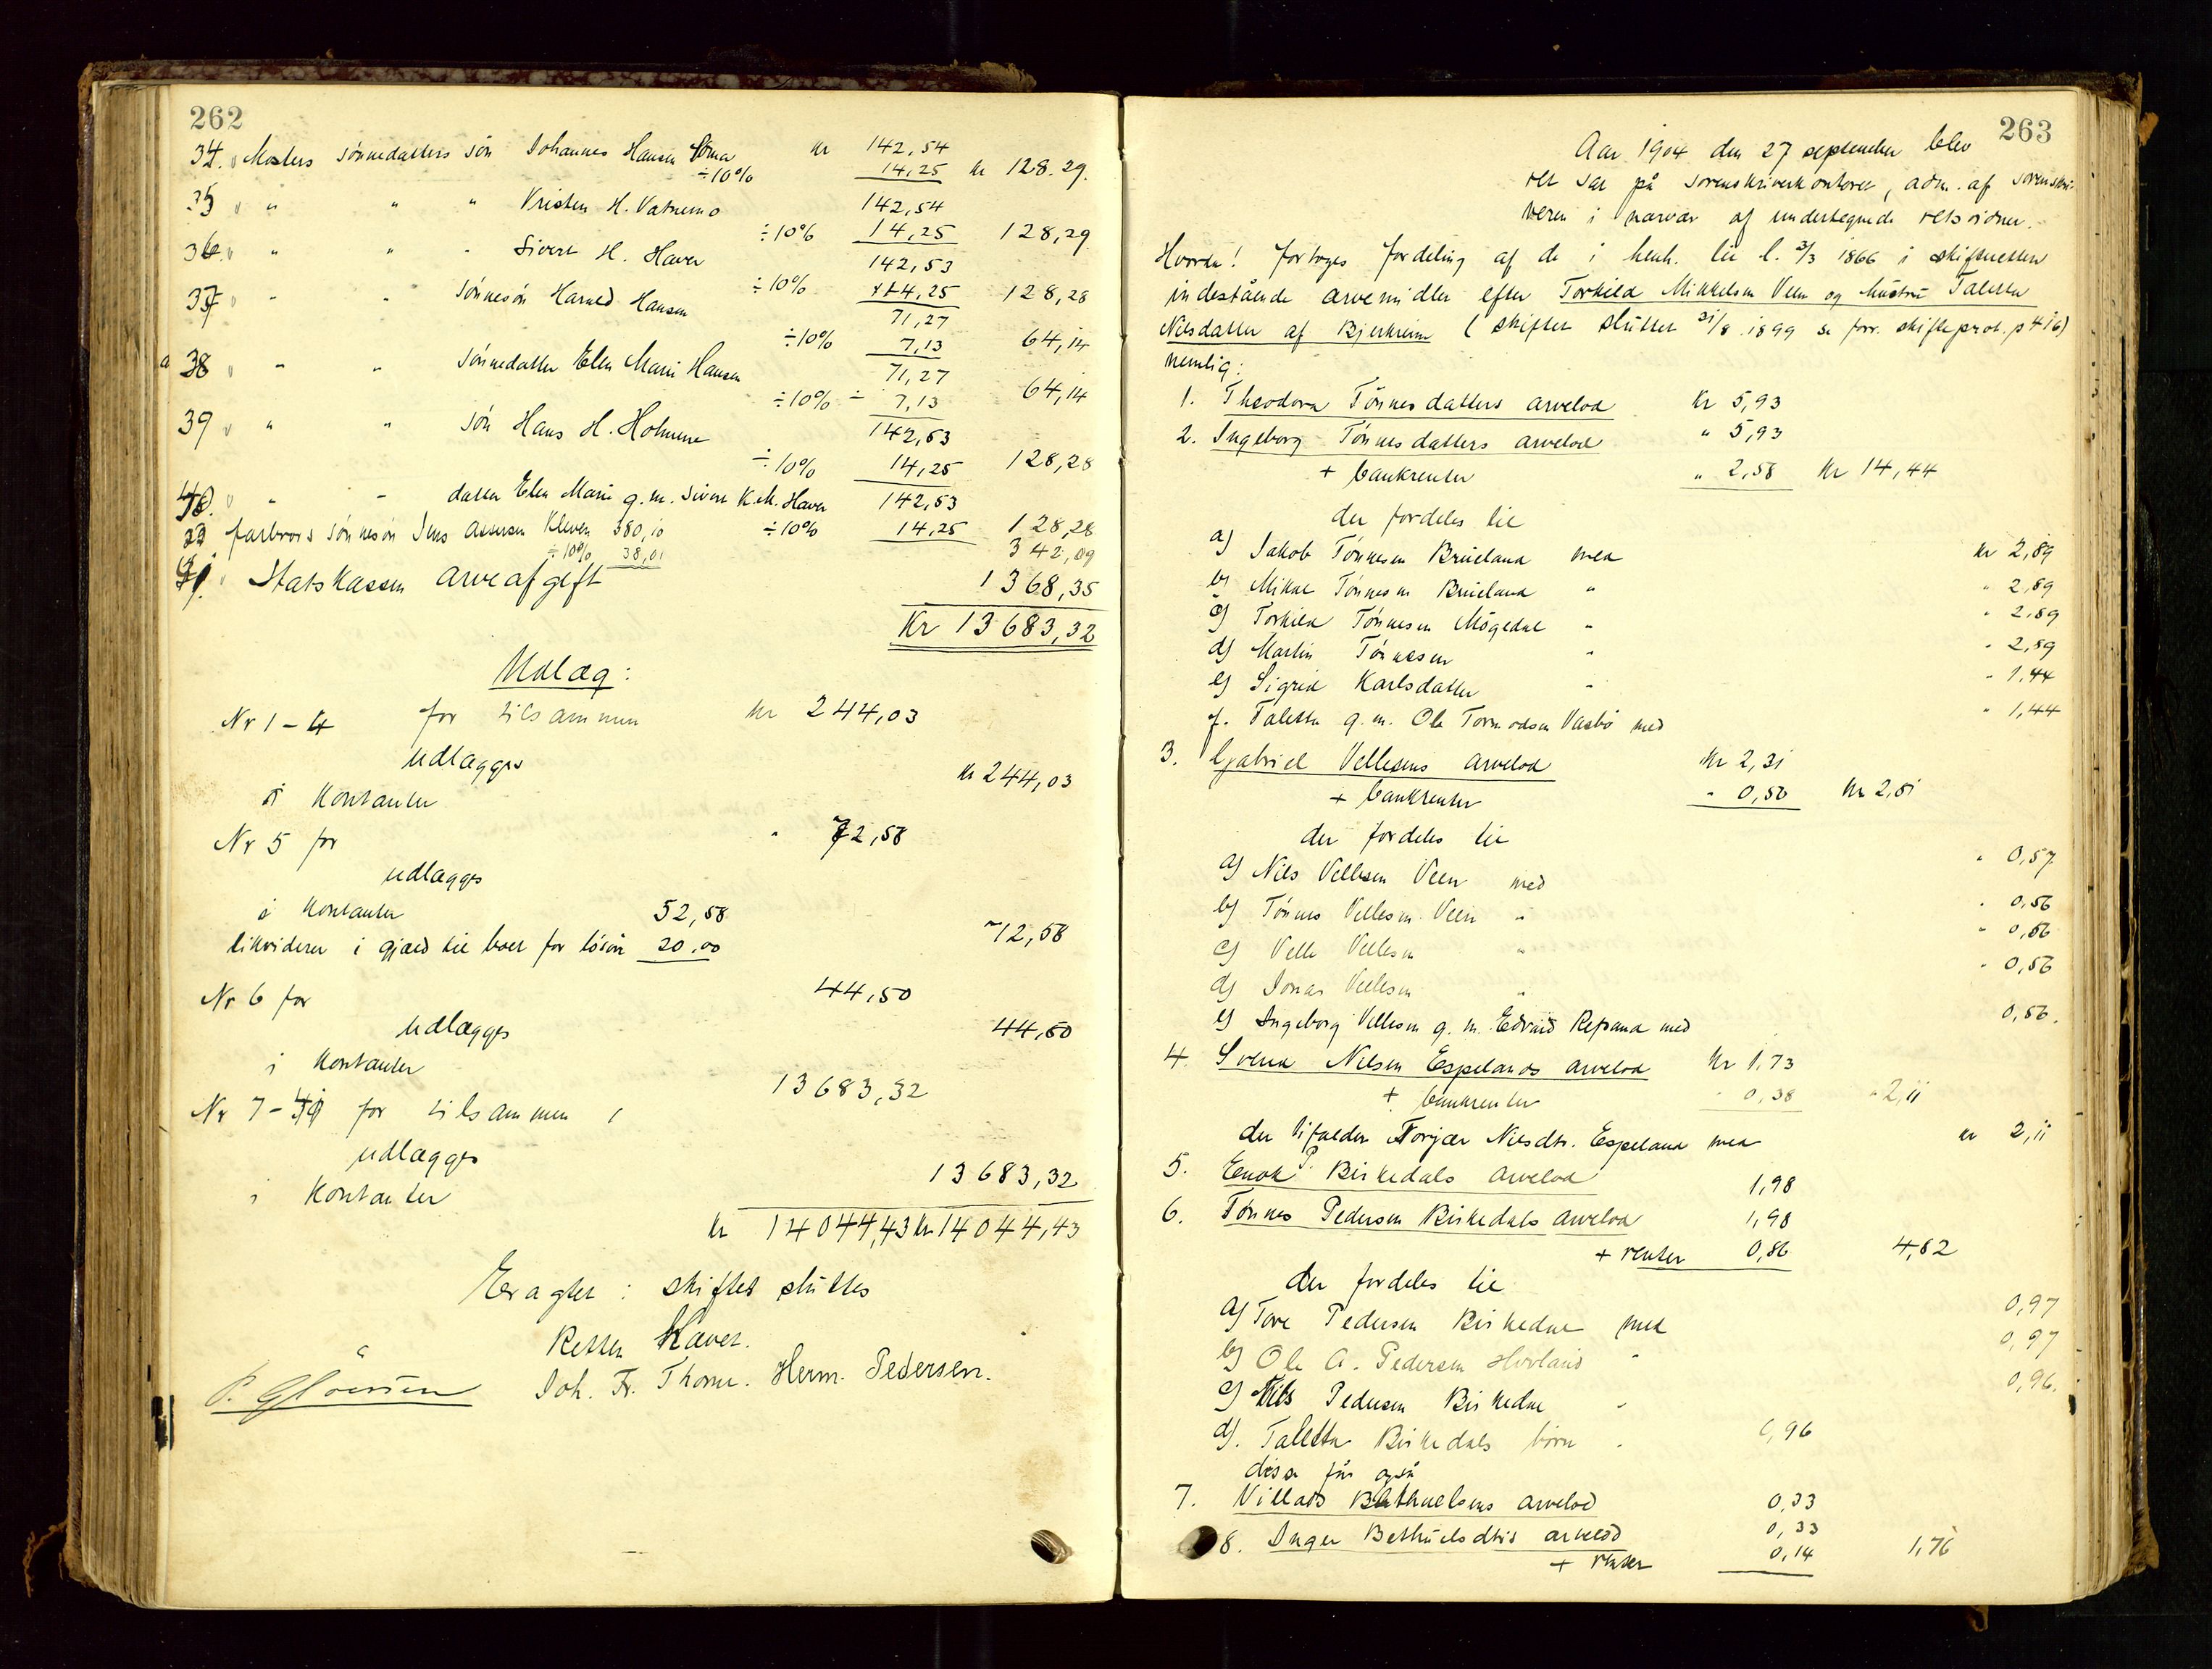 262
34. Mosters sønnedatters søn Johannes Hansen Homa kr 142,54
÷10% 14,25 kr 128.29.
35 " " " Kristen H. Vatnemo 142,54
÷10% 14,25 128,29
36. " " " Sivert H. Haver 142,53
÷10% 14,25 128,28
37 " " sønnesøn Harald Hansen 71,27
÷10% 7,13 64,14
38 " " sønnedatter Elen Marie Hansen 71,27
÷10% ÷ 7,13 64,14
39 " " søn Hans H. Holmene 142,53
÷10% 14,25 128,28
40. " " datter Elen Marie g.m. Sivert K. Haver 142,53
÷10% 14,25 128,28
farbrors sønnesøn Jens Assersen Kleven 380,10
÷10% 38,01 342,09
41. Statskassen arveafgift 1368,35
Kr 13683,32
Udlæg:
Nr 1-4 for tilsammen kr 244,03
udlægges
i kontanter kr 244,03
Nr 5 for " 72,58
udlægges
i kontanter 52,58
likviderer i gjæld til boet for løsøre 20.00 72,58
Nr 6 for 44,50
udlægges
i kontanter 44,50
Nr 7-41 for tilsammen 13683,32
udlægges
i kontanter 13683,32
kr 14044,43 kr 14044,43
Eragtet: skiftet sluttes
Retten hævet.
Joh. Fr. Thome. Herm. Pedersen.
263
Aar 1904 den 27 september blev
ret sat på sorenskriverkontoret, adm. af sorenskri-
veren i nærvær af undertegnede retsvidner.
Hvorda! foretoges fordeling af de i henh. til l. 3/3 1866 i skifteretten
indestående arvemidler efter Torkild Mikkelsen Veen og hustru Taletta
Nilsdatter af Bjerkreim (skiftet sluttet 31/8 1899 se forr. skifteprot. p 416)
nemlig:
1. Theodora Tønnesdatters arvelod Kr 5,93
2. Ingeborg Tønnesdatters arvelod " 5,93
+ bankrenter " 2,58 Kr 14,44
der fordeles til
a) Jakob Tønnesen Brueland med kr 2,89
b) Mikal Tønnesen Brueland " " 2,89
c) Torkild Tønnesen Møgedal " " 2,89
d) Martin Tønnesen " " 2,89
e) Sigrid Karlsdatter " " 1,44
f. Taletta g.m. Ole Tormodsen Vasbø med " 1,44
3. Gabriel Vellesens arvelod Kr 2,31
+ bankrenter " 0,50 Kr 2,81
der fordeles til
a) Nils Vellesen Veen med " 0,57
b) Tønnes Vellesen Veen " " 0,56
c) Velle Vellesen " " 0,56
d) Jonas Vellesen " " 0,56
e) Ingeborg Vellesen g.m. Edvard Refsand med 0,56.
4. Svend Nilsen Espelands arvelod Kr 1,73
+ bankrenter " 0,38 " 2,11
der tilfalder Torjær Nilsdtr. Espeland med kr 2,11
5. Enok P. Birkedals arvelod 1,98
6. Tønnes Pedersen Birkedals arvelod 1,98
+ renter 0,86 4,82
der fordeles til
a) Tore Pedersen Birkedal med 0,97
b) Ole A. Pedersen Hovland " 0,97
c) Nils Pedersen Birkedal " 0,96.
d). Taletta Birkedals børn " 0,96
disse får også
7. Villads Bethuelsens arvelod 0,33
8. Inger Bethuelsdtrs arvelod 0,33
+ renter 0,14 1,76